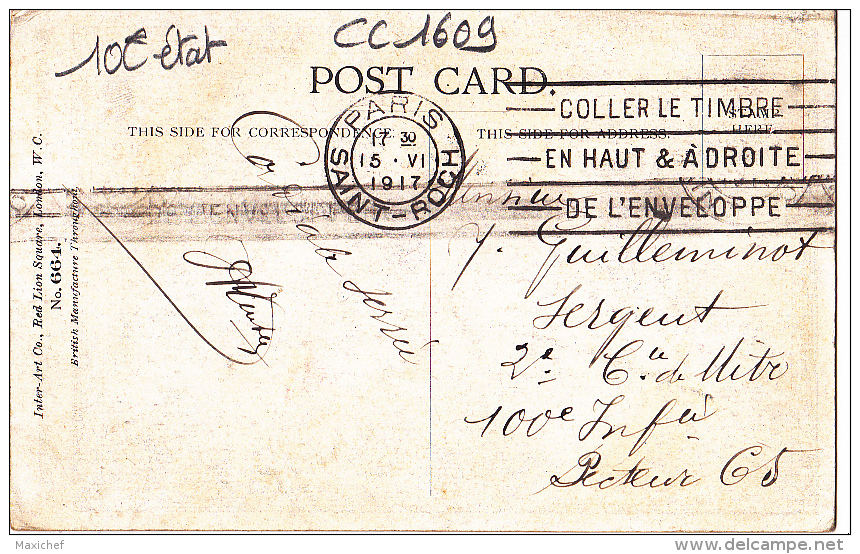 10€ état
CC1609
POST CARD.
THIS SIDE FOR CORRESPONDENCE.
THIS SIDE FOR ADDRESS.
STAMP
HERE
PARIS
17 30
15 · VI
1917
SAINT-ROCH
COLLER LE TIMBRE
EN HAUT & À DROITE
DE L'ENVELOPPE
Inter-Art Co., Red Lion Square, London, W.C.
No. 664.
British Manufacture Throughout.
Cordiale
serrée
Monsieur
Y. Guilleminot
Sergent
2e Cie de Mitr
100e Infie
Secteur 65
Maxichef
delcampe.net